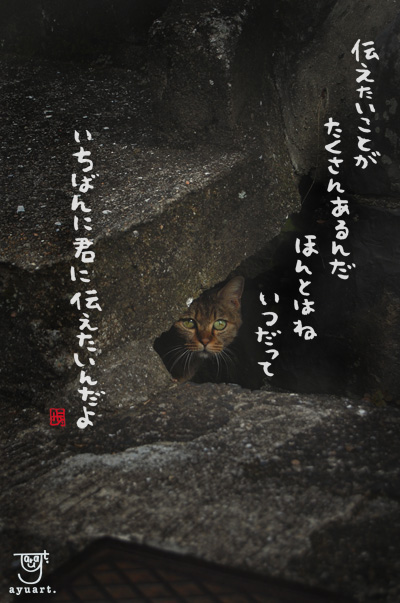 伝えたいことが
たくさんあるんだ
ほんとはね
いつだって
いちばんに君に伝えたいんだよ
ayuart.